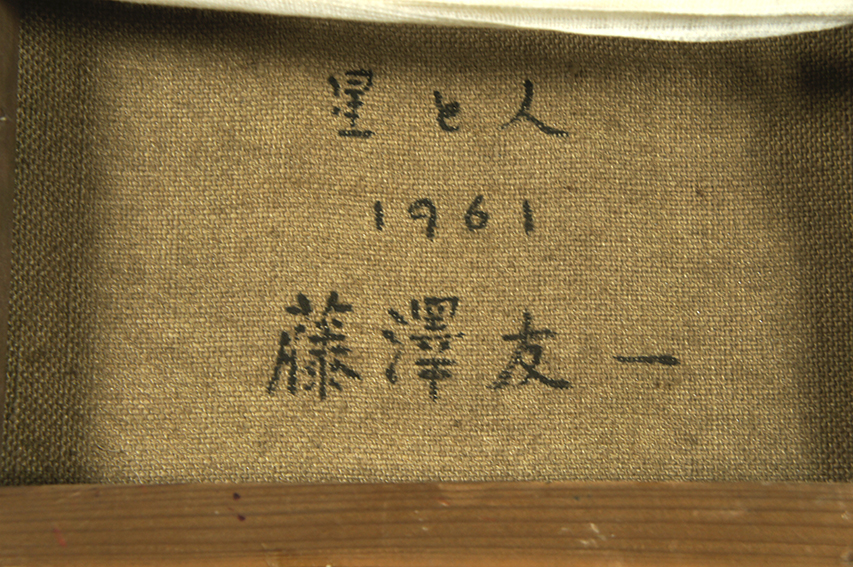 星と人
1961
藤澤友一